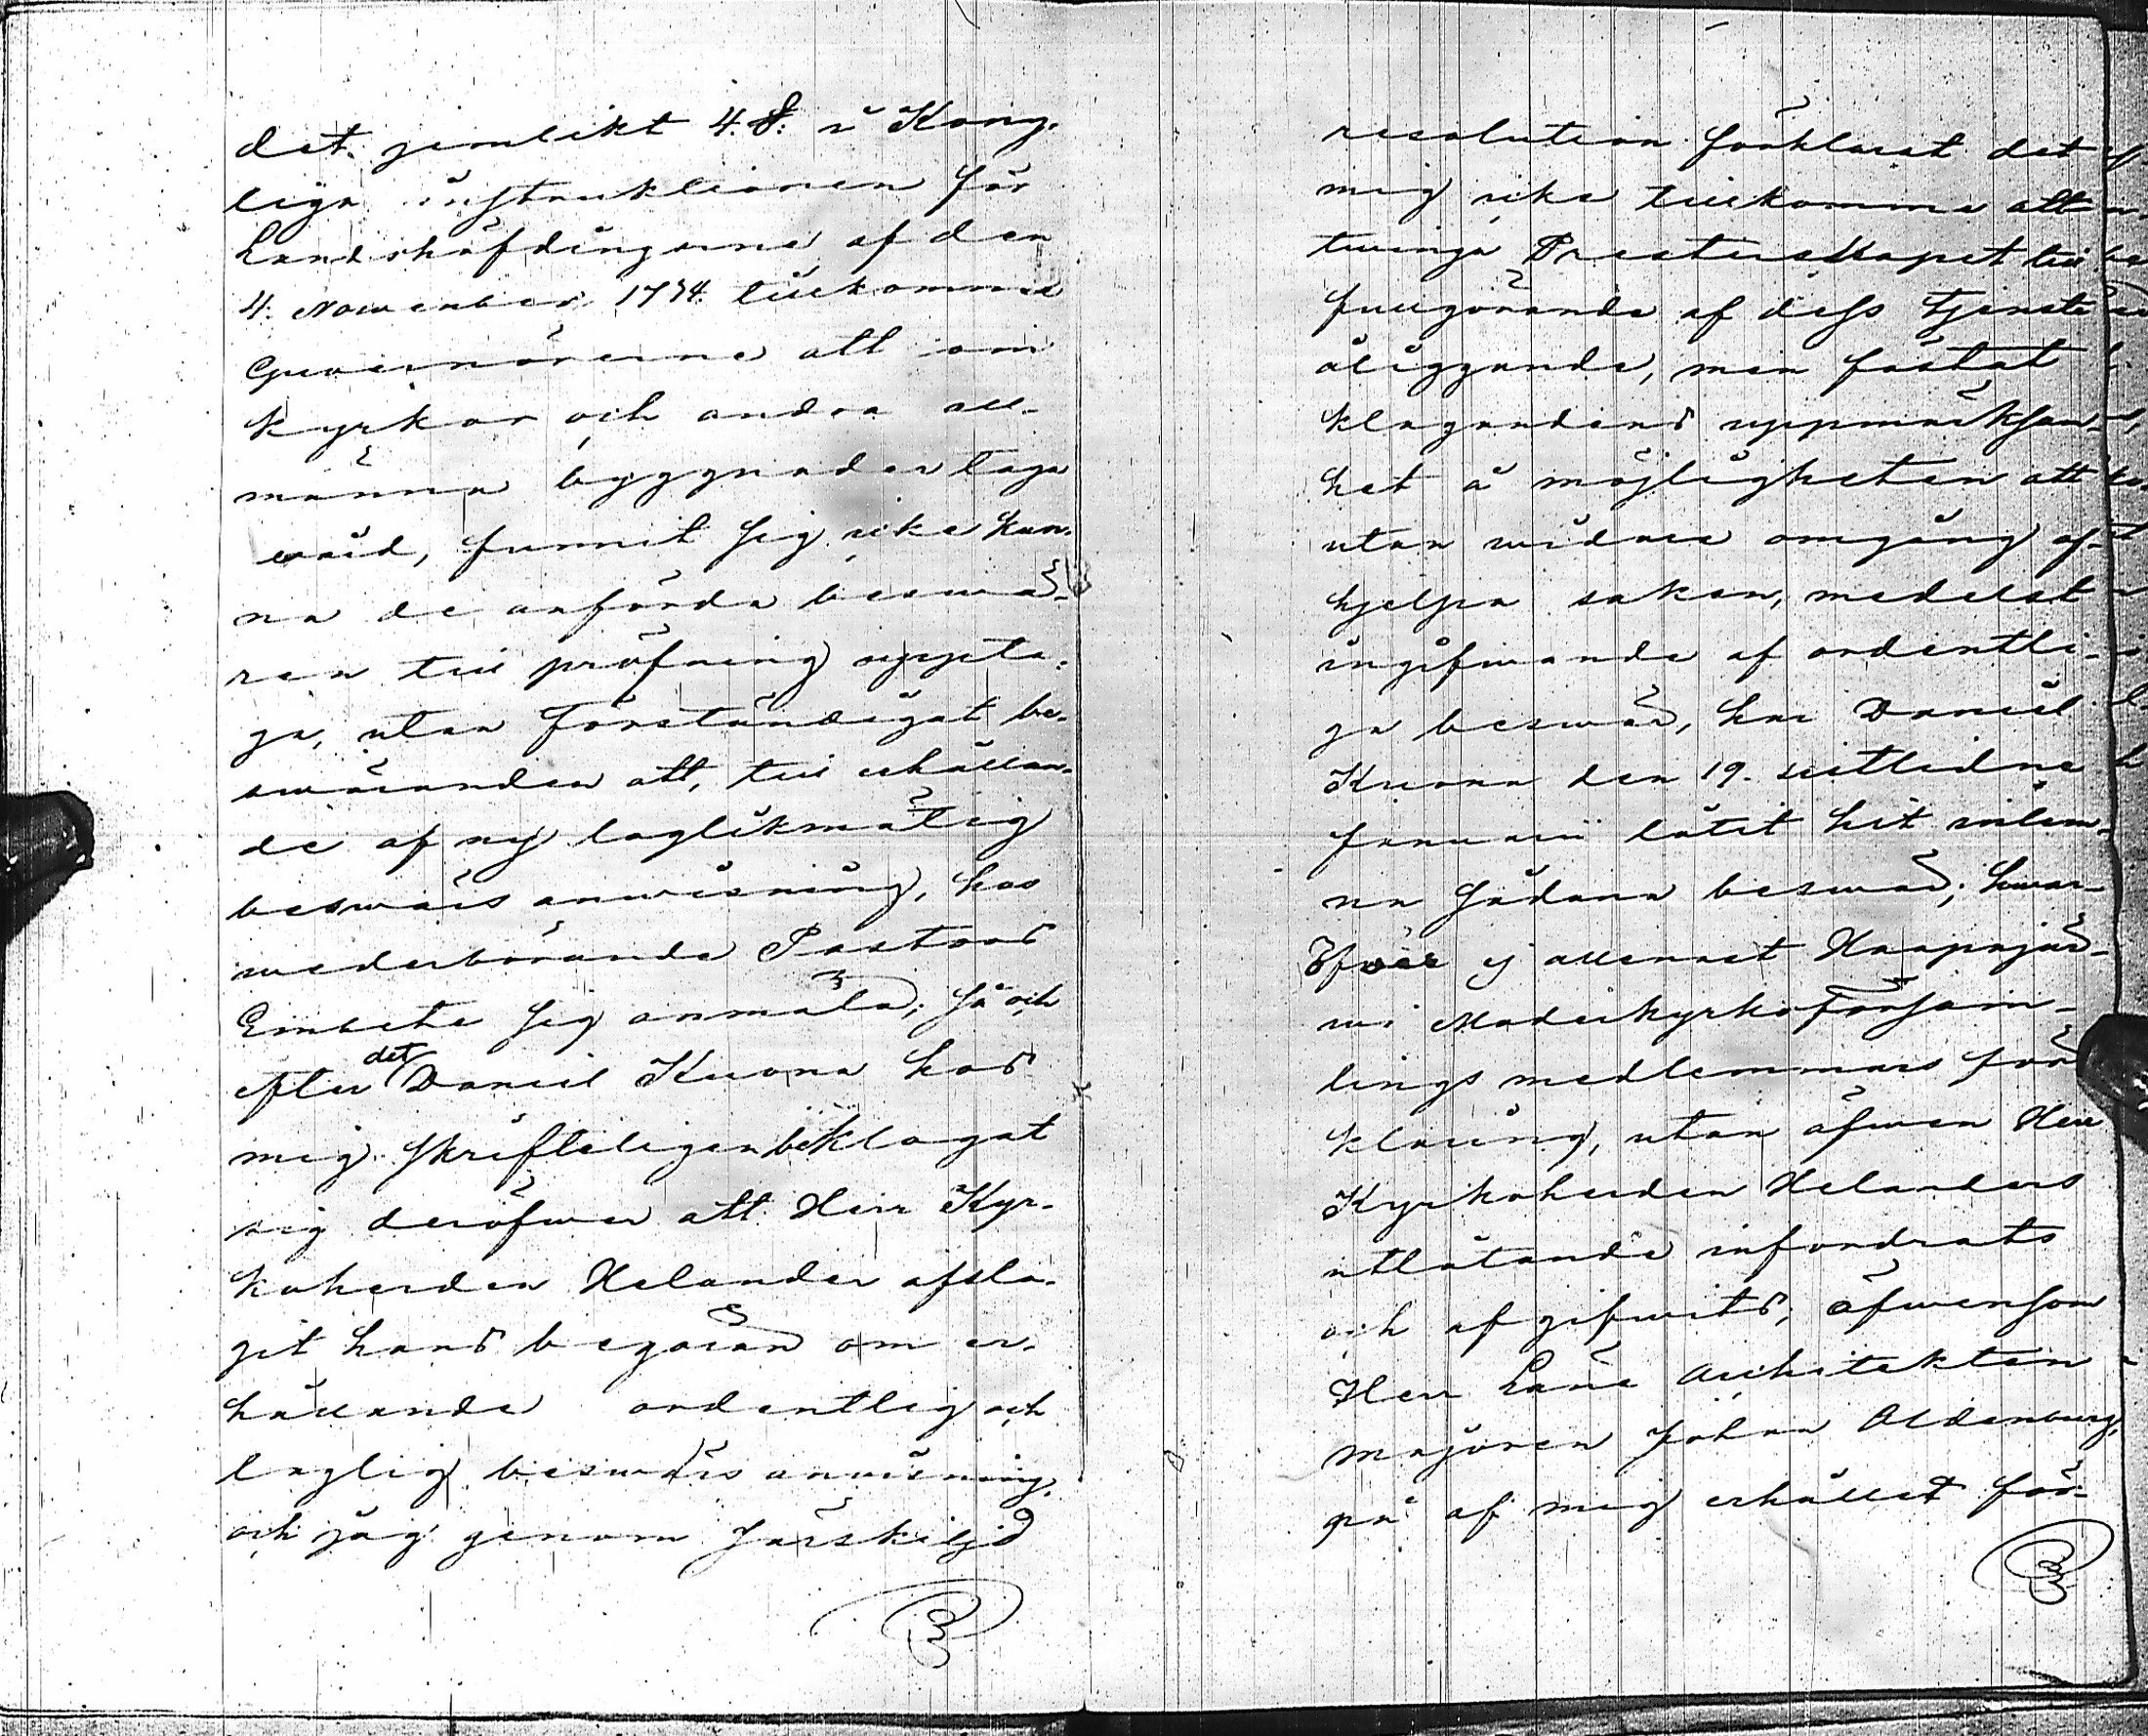 det, jemlikt 4. §. i Kong.
liga instruktionen för
Landshöfdingarne af den
4. November 1734. tillkomma
Guvernörerne att om
kyrkor och andra all-
männa byggnader taga
vård, funnit sig icke kun-
na de anförda beswä-
ren till pröfning uppta-
ga, utan förständigat be-
swäranden att, till erhållan-
de af ny laglikmätig
beswärs anwisning, hos
wederbörande Pastors
Embete sig anmäla; så och
efter det Daniel Kuona hos
mig skrifteligen beklagat
sig deröfwer att Herr Kyr-
koherden Helander afsla-
git hans begäran om er-
hållande ordentlig och
laglig beswärs anwisning,
och jag genom särskild
resolution förklarat det
mig icke tillkomma att
twinga Presterskapet till
fullgörande af dess tjenste
åliggande, men fästat
klagandens uppmärksam-
het å möjligheten att
utan widare omgång af-
hjelpa saken, medelst
ingifwande af ordentli-
ga beswär, har Daniel
Kuona den 19. sistlidne
Januarii låtit hit inlem-
na sådana beswär; hwar-
öfwer ej allenast Haapajär-
wi Moderkyrkoförsam-
lings medlemmars för-
klaring, utan äfwen Herr
Kyrkoherden Helanders
utlåtande infordrats
och afgifwits, äfwensom
Herr Läne Architekten
majoren Johan Oldenburg,
på af mig erhållet för-